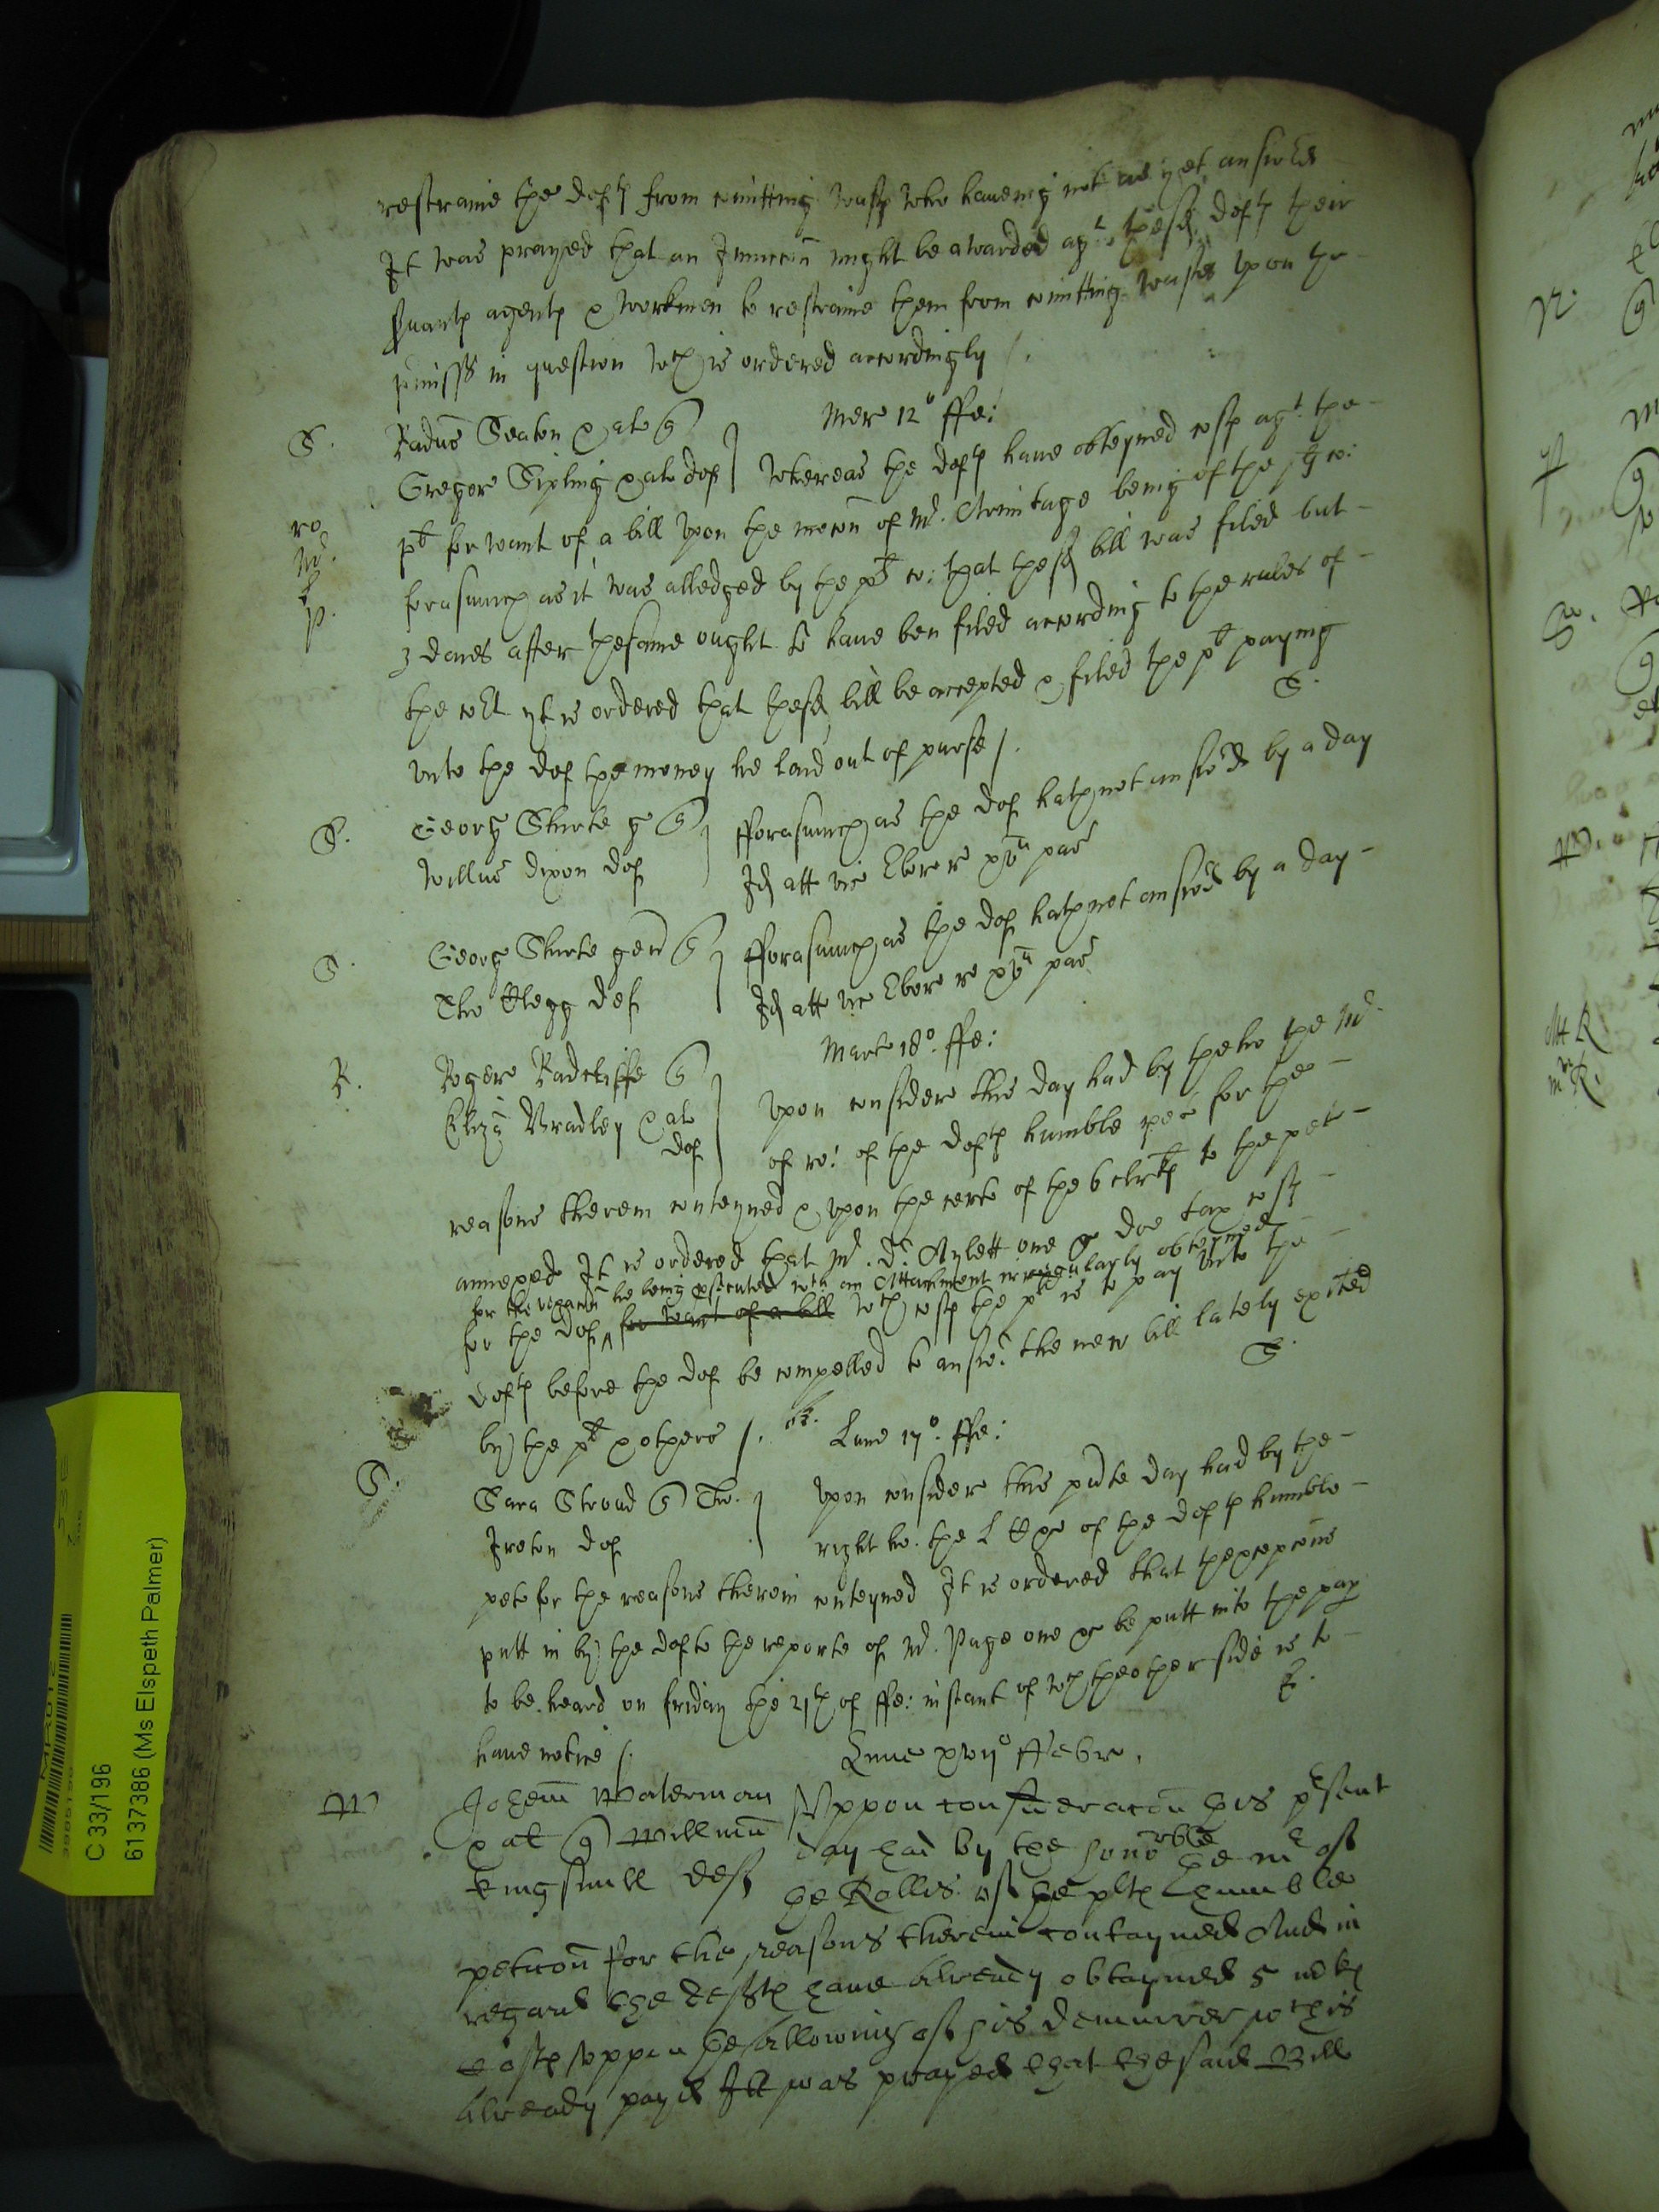 restraine the defts from comitting wast who haveing not as yet answered
It was prayed that an Iniuncon might be awarded agt the sd defts their
srvants agents & workmen to restraine them from comitting waste upon the
prmisss in question wch is ordered accordingly /.
Mer 12o ffe:
S.
Radus Seaton & al
Gregor Sipling & al def
Whereas the defts have obteyned costs agt the
ro
Mr.
p.
plt for want of a bill upon the mocon of Mr. Armitage being of the plt co:
forasmuch as it was alledged by the plt co: that the sd bill was filed but
3 daies after the same ought to have ben filed according to the rules of
the cort yt is ordered that the sd bill be accepted & filed the plt paying
unto the def the money he laid out of purse /.
S.
S.
Georg Shirte g
Willus Dixon def
fforasmuch as the def hath not answed by a day
Id att vic Ebor re xva pas
S.
Georg Shirte gen
Tho Clegg def
fforasmuch as the def hath not answed by a day
Id att vic Ebor re xva pas
Marte 18o. ffe:
R.
Roger Radcliffe
Eliza Bradley & al
def
Upon consider this day had by the ho the Mr.
of ro: of the defts humble pet for the
reasons therein conteyned & upon the certe of the 6 clrks to the pet
annexed It is ordered that Mr. Dr. Aylett one &c doe tax costs
for the vexacon he being prsecuted wth an Attachment irregularly obteyned
for the def for want of a bill wch costs the plt is to pay unto the
defts before the def be compelled to answer the new bill lately exited
by the plt & others /. ex.
S.
Lune 17o. ffe:
S.
Sara Stroud Tho.
Ireton def
Upon consider this pnte day had by the
right ho. the L Kper of the defts humble
pet for the reasons therein conteyned It is ordered that thexcepcons
putt in by the def to the reporte of Mr. Page one &c be putt into the pap
to be heard on friday the 21th of ffe: instant of wch the other side is to
have notice /.
E.
Lune xvijo ffebr.
W
Johem Waterman
& al Willmu
Kingsmill deft
Uppon consideracon this prsent
day had by the honorble the mr of
the Rolles of the plts humble
peticon for the reasons therein contayned And in
regard the defts have already obtayned 5 mrks
costs uppon the allowing of his demurrer wch is
already payd Itt was prayed that the said Bill
C 33/196
61373386 (Ms Elspeth Palmer)